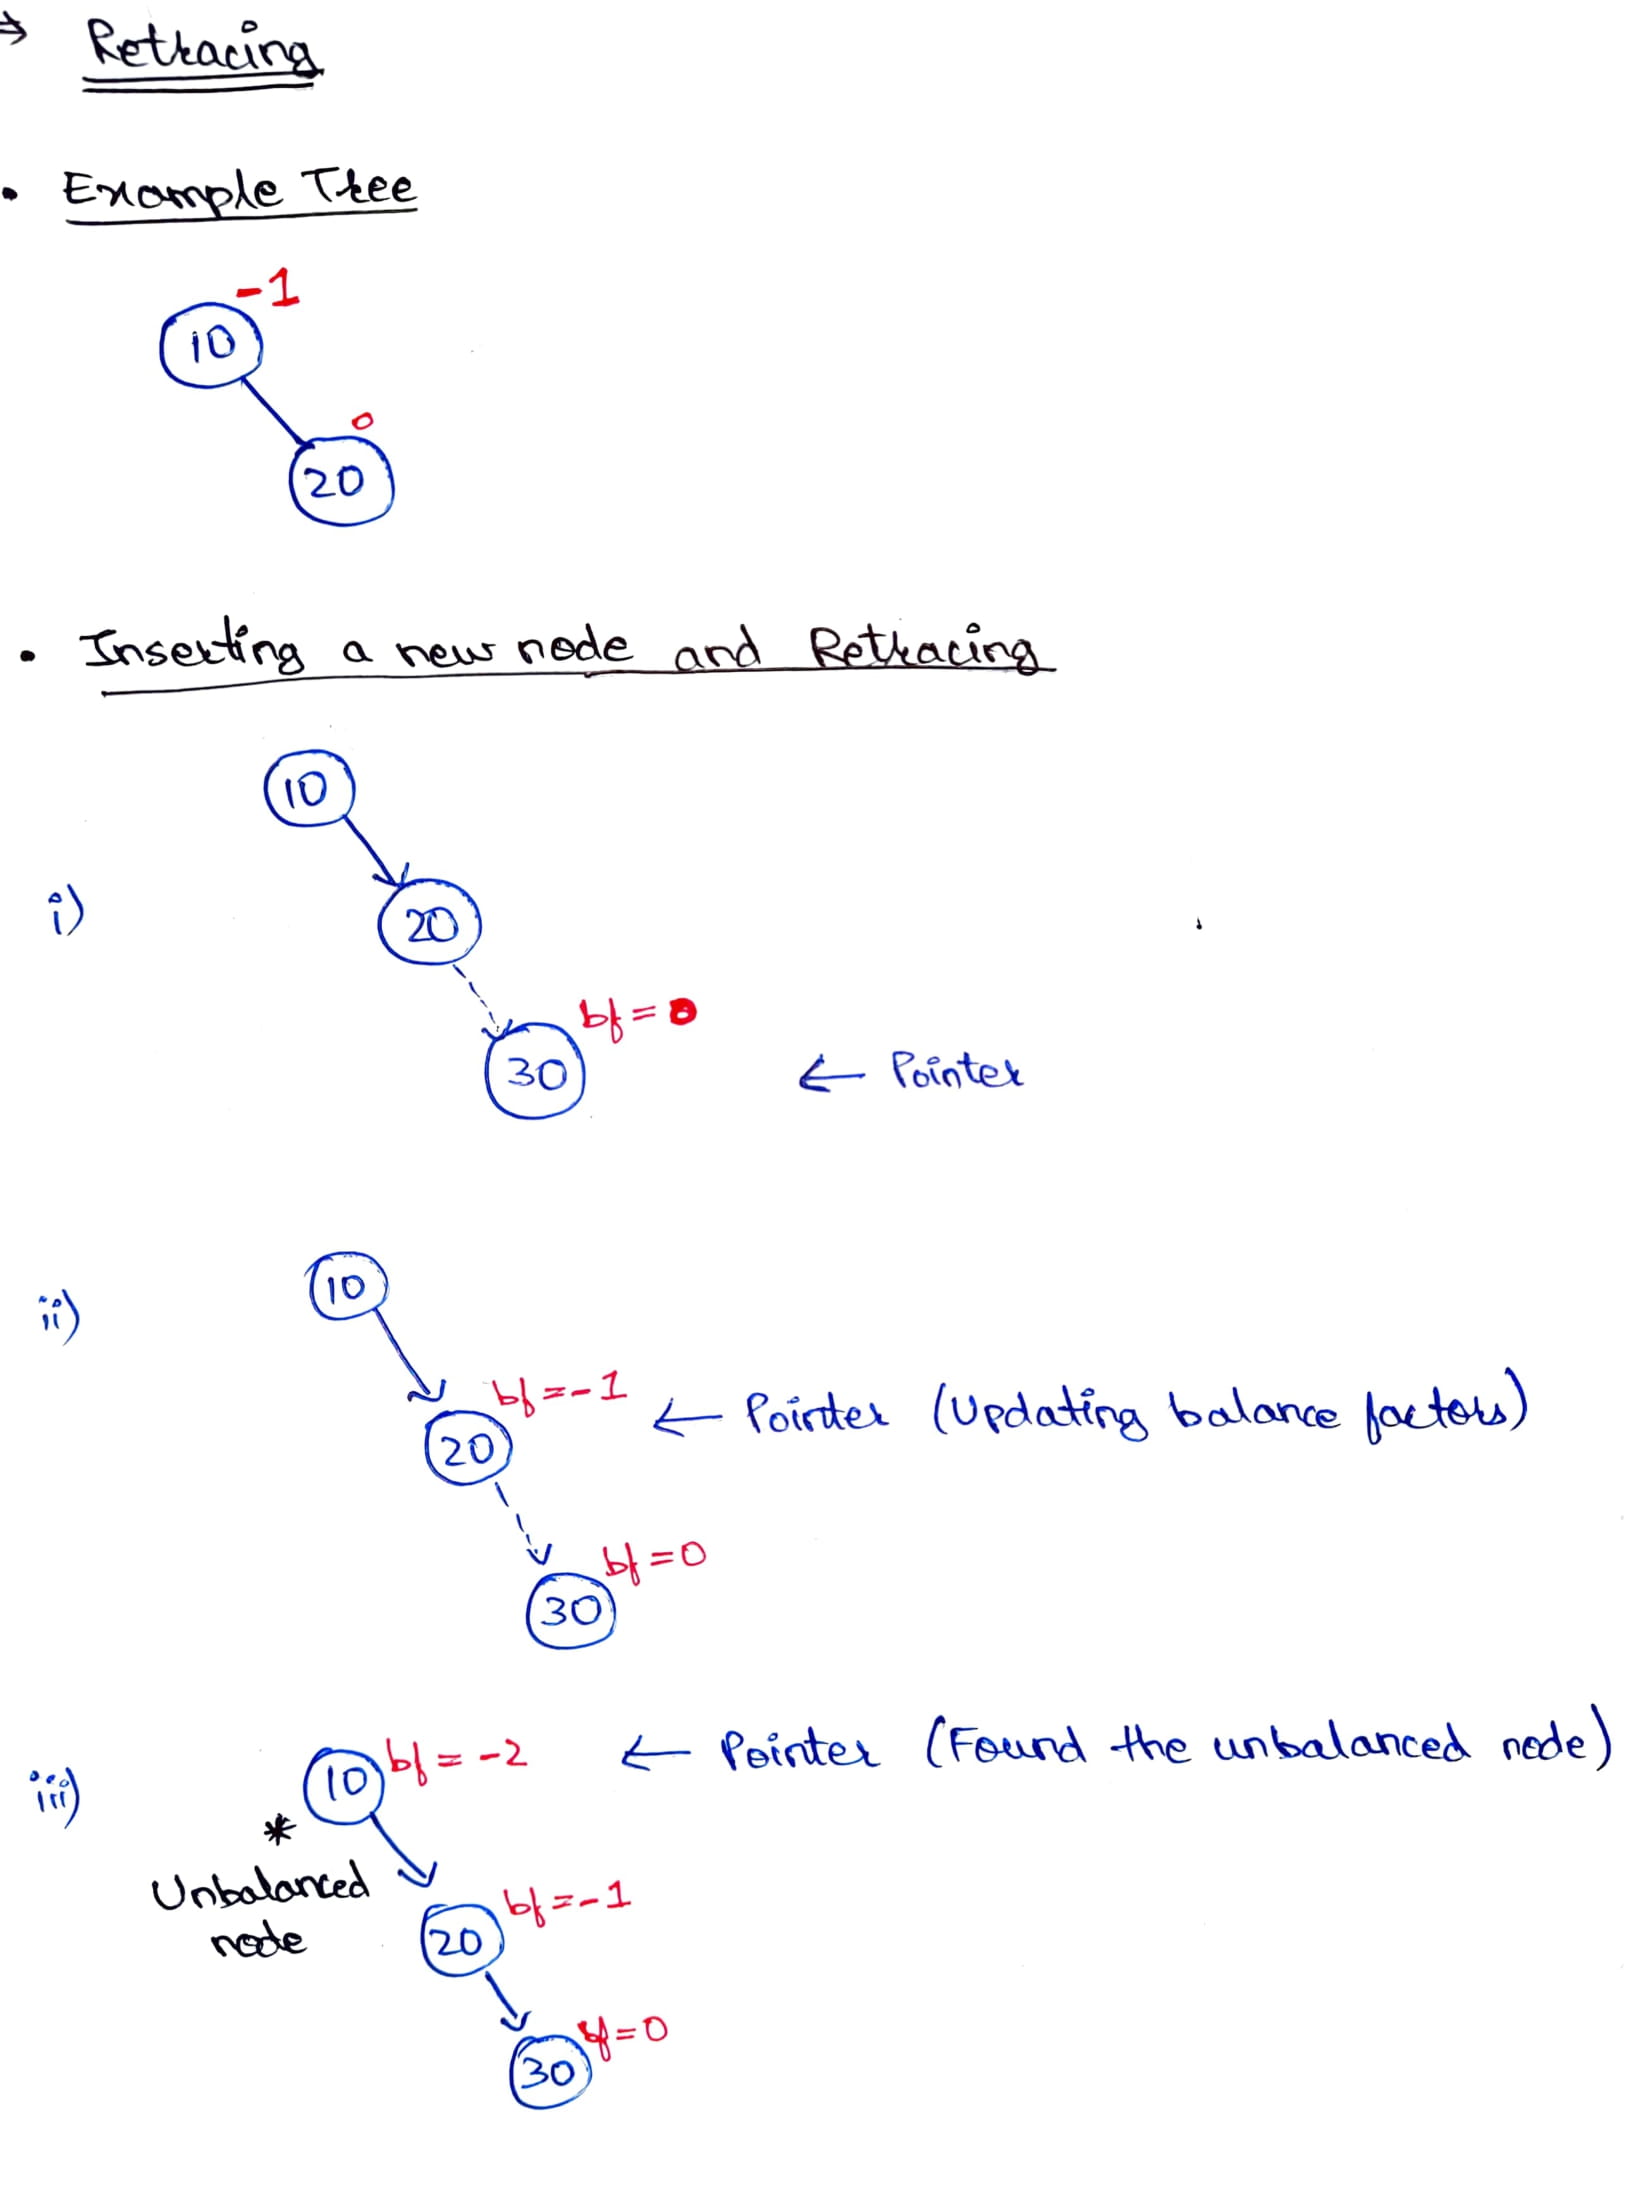 → Retracing
• Example Tree
-1
10
0
20
• Inserting a new node and Retracing
10
i)
20
bf = 0
30 ← Pointer
ii) 10
bf = -1
20 ← Pointer (Updating balance factors)
bf = 0
30
iii) 10 bf = -2 ← Pointer (Found the unbalanced node)
*
Unbalanced
node
bf = -1
20
bf = 0
30